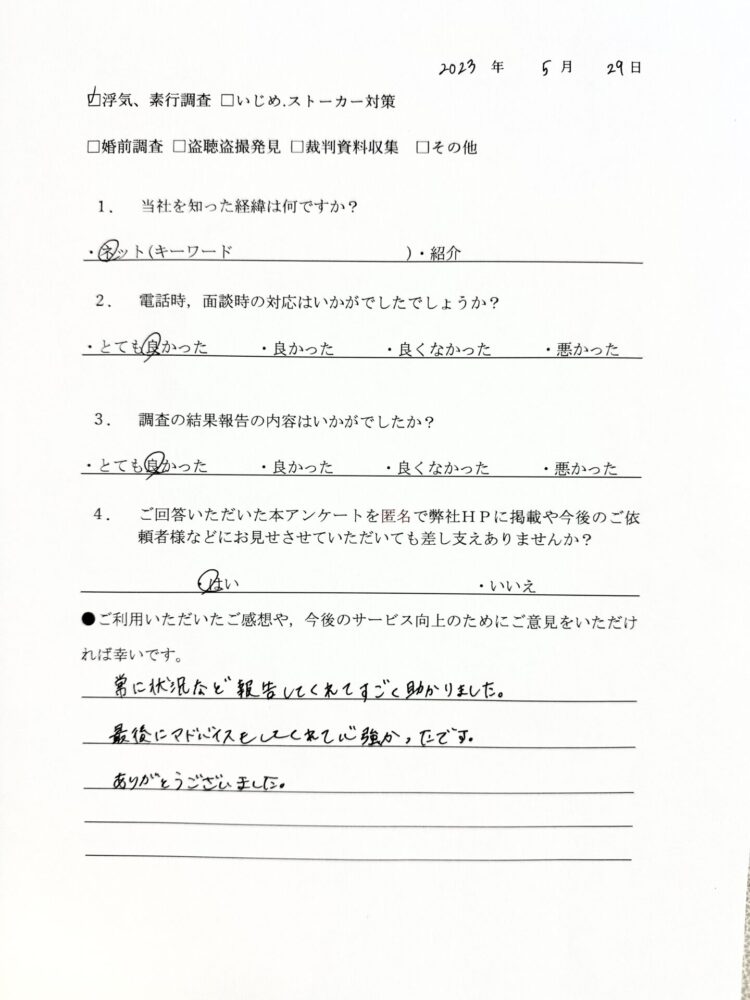 2023 年 5 月 29 日
☑浮気、素行調査 □いじめ.ストーカー対策
□婚前調査 □盗聴盗撮発見 □裁判資料収集 □その他
1. 当社を知った経緯は何ですか？
・ネット(キーワード )・紹介
2. 電話時，面談時の対応はいかがでしたでしょうか？
・とても良かった ・良かった ・良くなかった ・悪かった
3. 調査の結果報告の内容はいかがでしたか？
・とても良かった ・良かった ・良くなかった ・悪かった
4. ご回答いただいた本アンケートを匿名で弊社ＨＰに掲載や今後のご依
頼者様などにお見せさせていただいても差し支えありませんか？
・はい ・いいえ
●ご利用いただいたご感想や，今後のサービス向上のためにご意見をいただけ
れば幸いです。
常に状況など報告してくれてすごく助かりました。
最後にアドバイスもしてくれて心強かったです。
ありがとうございました。